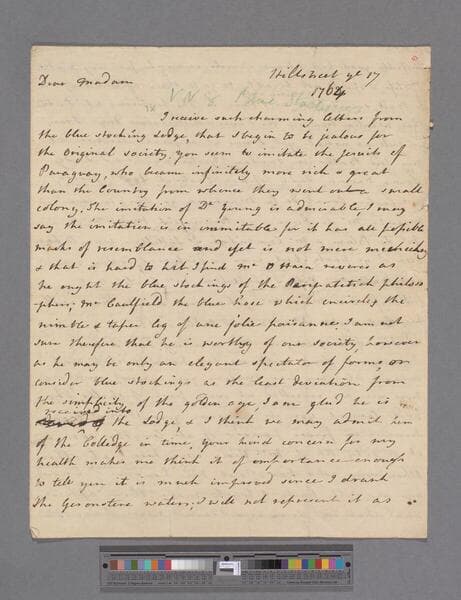 Hillstreet ye 17
1764
Dear Madam
VN & Blue Stockings
I receive such charming letters from
the blue stocking Lodge, that I begin to be jealous for
the Original society, you seem to imitate the jesuits of
Paraguay, who became infinitely more rich & great
than the Country from whence they went out a small
colony. The imitation of Dr Young is admirable, I may
say the imitation is inimitable for it has all possible
marks of resemblance and yet is not mere
& that is hard to hit. I find Mr O Hara reveres as
he ought the blue stockings of the Peripatetick philoso
pher; Mr Caulfeild the blue hose which encircles the
nimble & taper leg of une jolie paisanne. I am not
sure therefore that he is worthy of our society, however
as he may be only an elegant spectator of forms, or
consider blue stockings as the least deviation from
the simplicity of the golden age, I am glad he is
received into
the Lodge, & I think we may admit him
of the Colledge in time. Your kind concern for my
health makes me think it of importance enough
to tell you it is much improved since I drank
the Geronstere waters; I will not represent it as